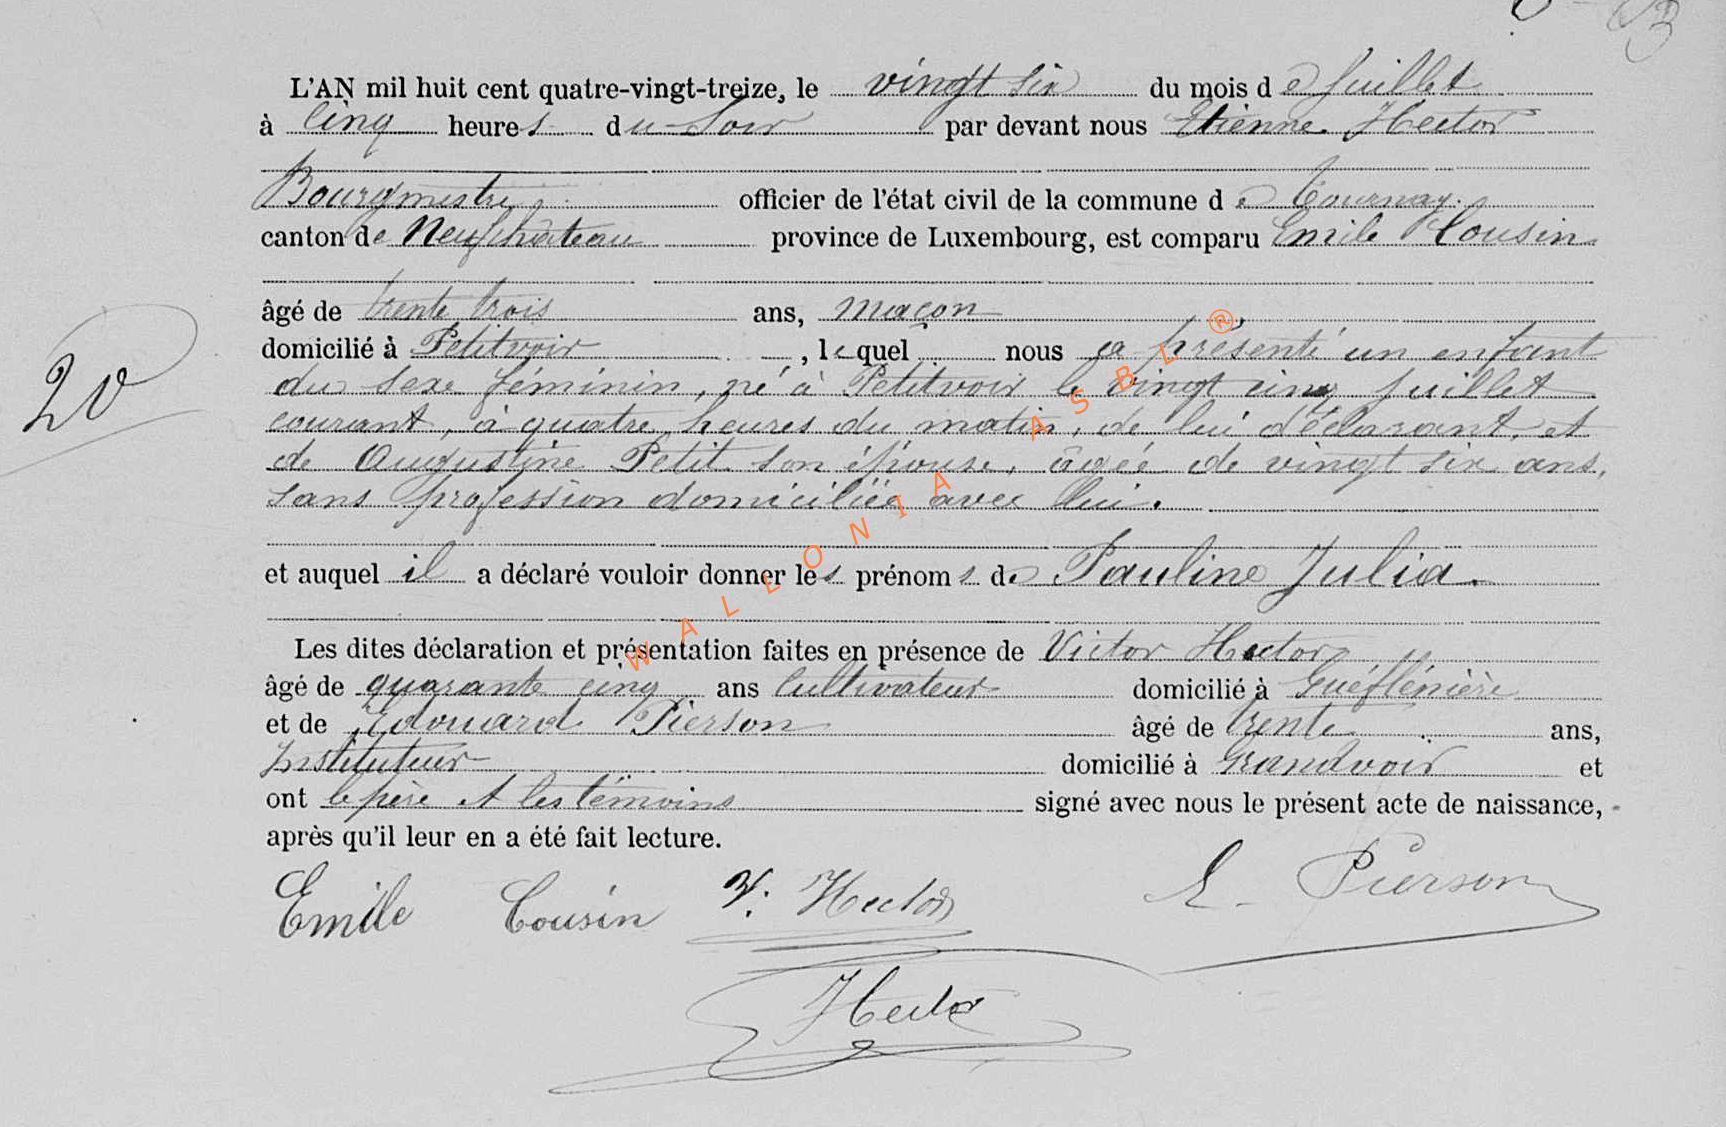 L'AN mil huit cent quatre-vingt-treize, le vingt six du mois de Juillet
à cinq heures du Soir par devant nous Etienne Hector
Bourgmestre officier de l'état civil de la commune de Tournay.
canton de Neufchâteau province de Luxembourg, est comparu Emile Cousin
âgé de trente trois ans, maçon
domicilié à Petitvoir, lequel nous a présenté un enfant
du sexe féminin, né à Petitvoir le vingt cinq Juillet
courant, à quatre heures du matin, de lui déclarant, et
de Augustine Petit son épouse, âgée de vingt six ans,
sans profession domiciliée avec lui.
et auquel il a déclaré vouloir donner les prénoms de Pauline Julia.
Les dites déclaration et présentation faites en présence de Victor Hector
âgé de quarante cinq ans cultivateur domicilié à
et de Edouard Pierson âgé de trente ans,
Instituteur domicilié à Grandvoir et
ont le père et les témoins signé avec nous le présent acte de naissance,
après qu'il leur en a été fait lecture.
Emile Cousin V. Hector E. Pierson
Hector
20
WALLONIA ASBL ®